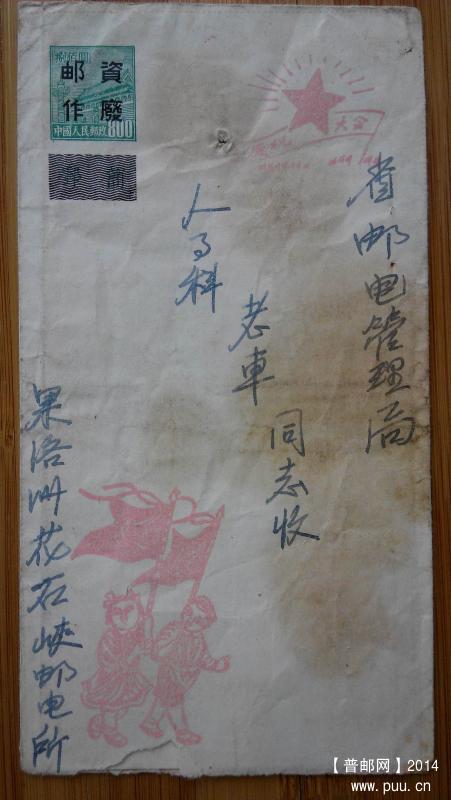 捌佰圓
邮資
作廢
中國人民郵政 800
大会
省邮电管理局
人事科
老車同志收
果洛州花石峡邮电所
【普邮网】2014
www.puu.cn